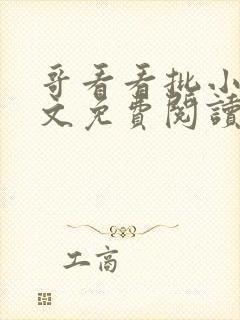 哥看看批小
文免費閱讀
工商